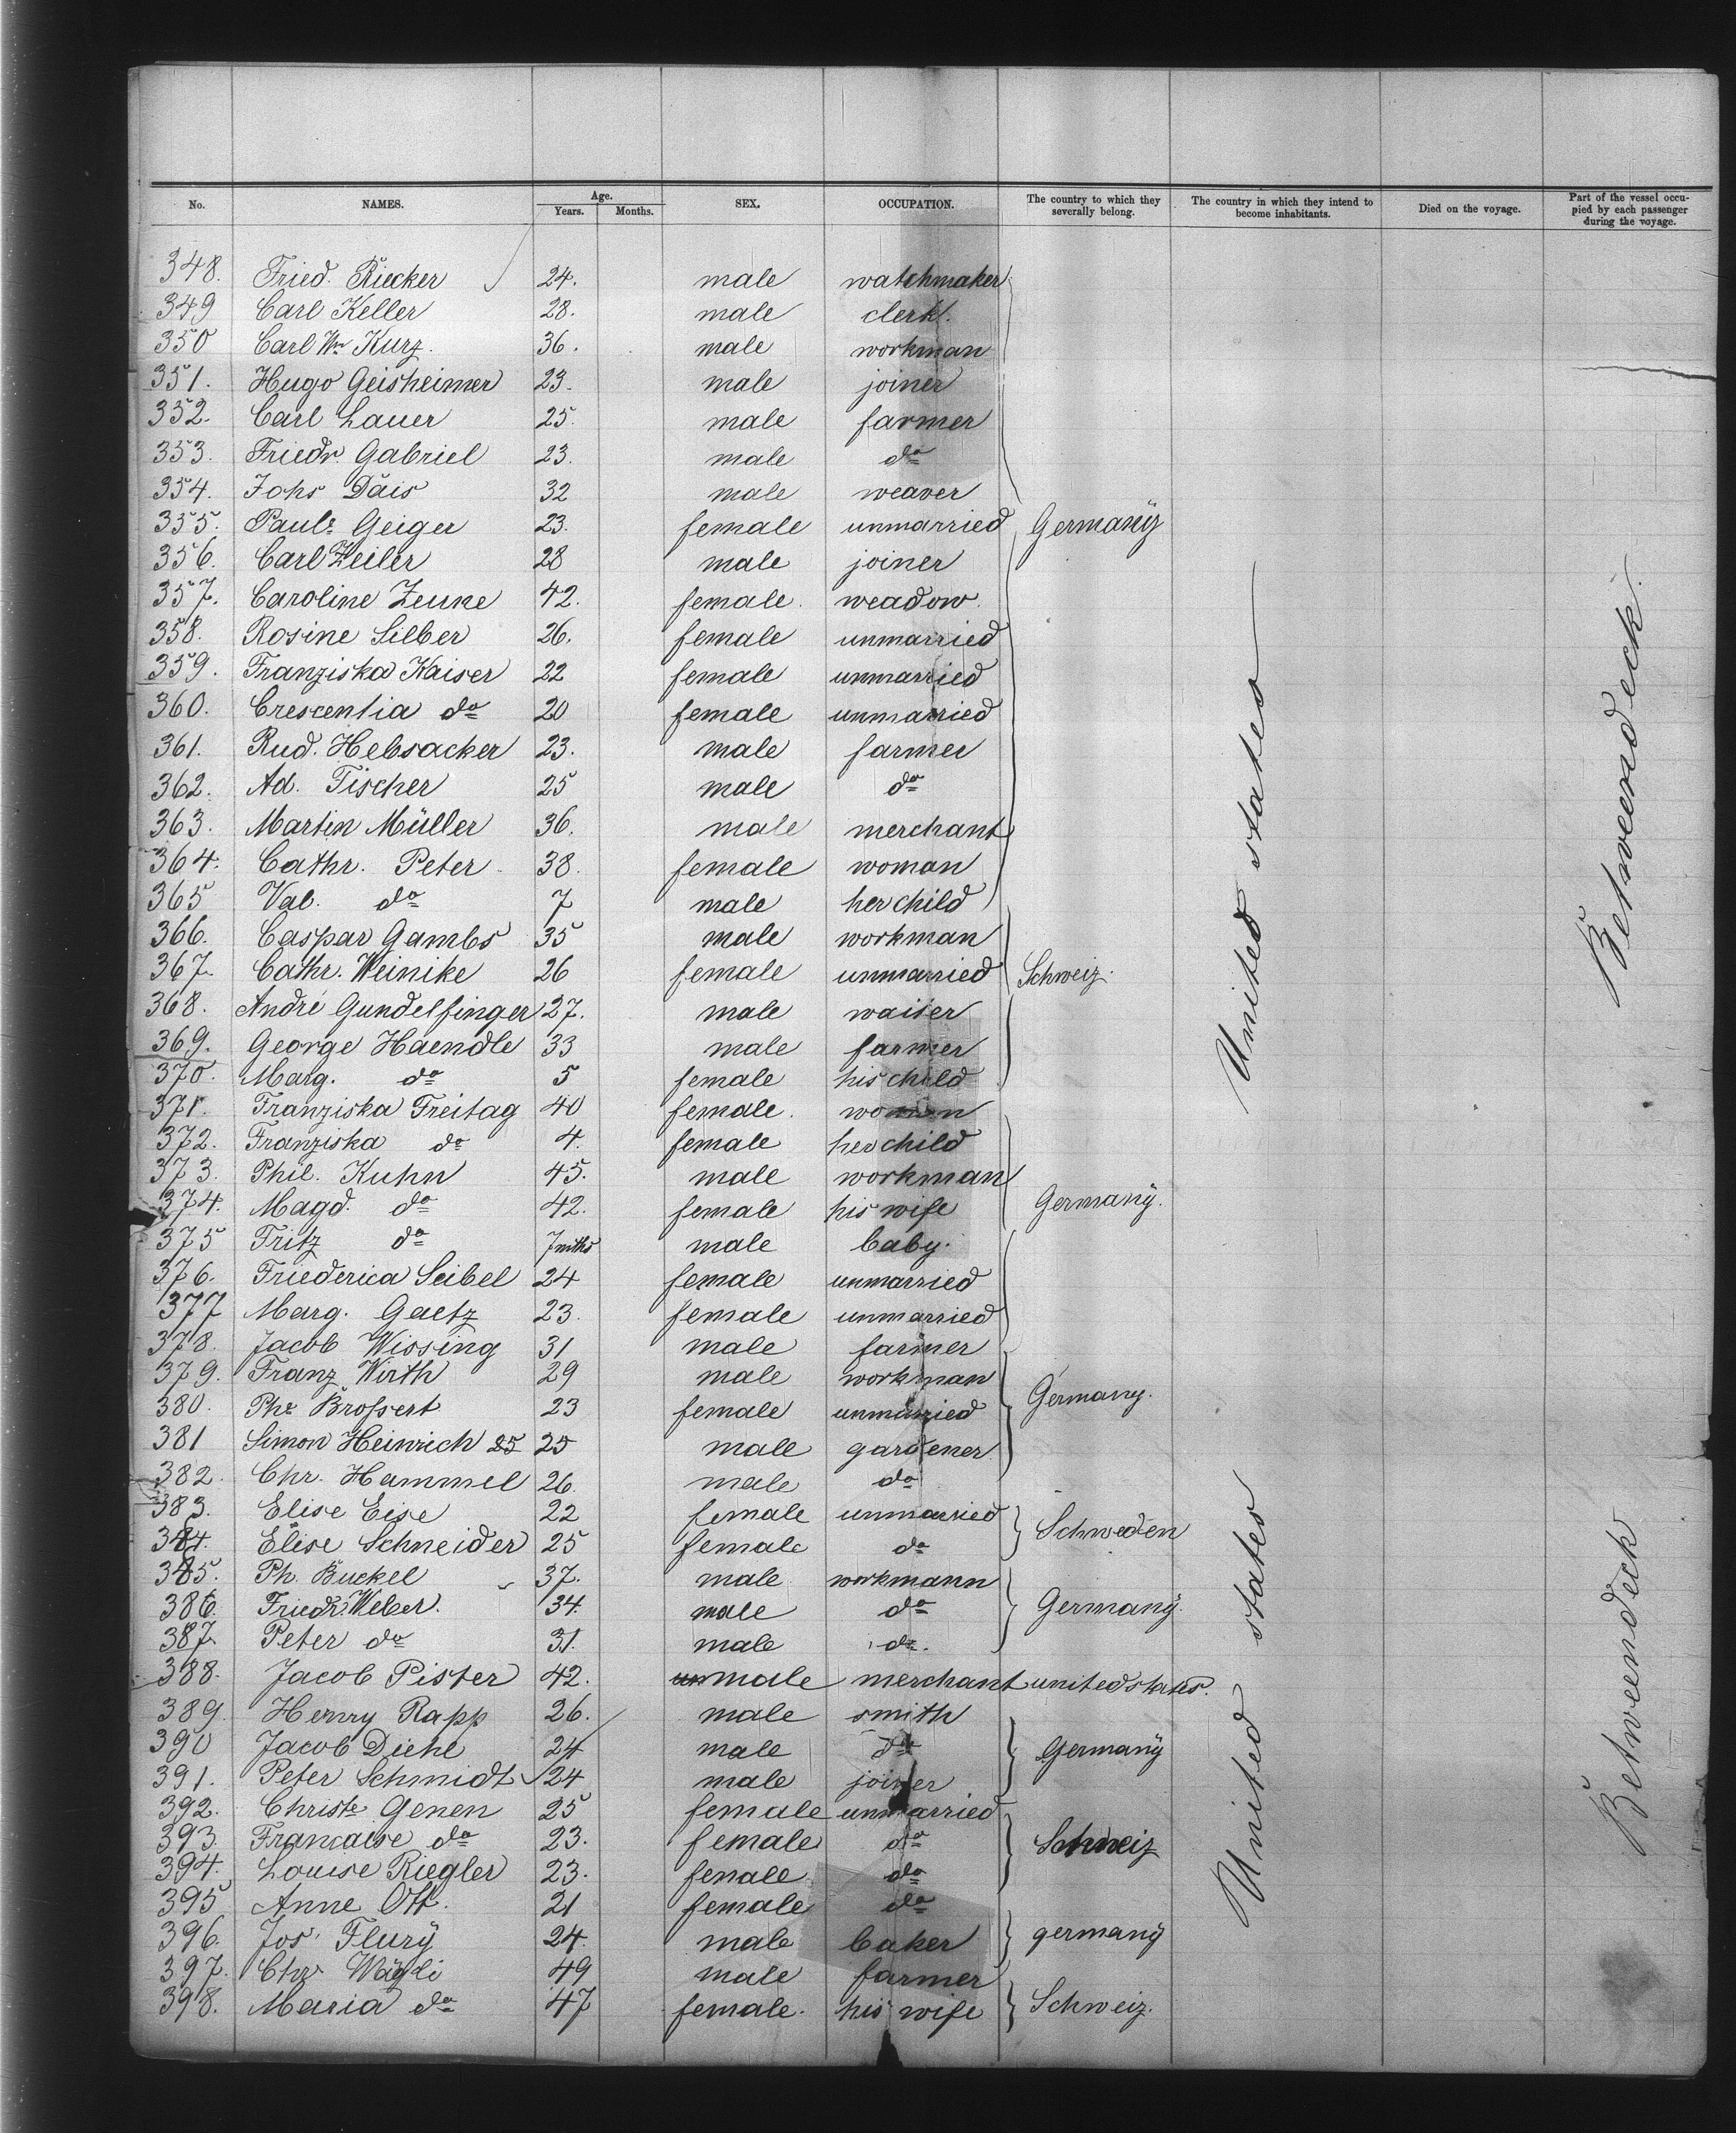 No. NAMES. Age. Years. Months. SEX. OCCUPATION. The country to which they severally belong. The country in which they intend to become inhabitants. Died on the voyage. Part of the vessel occupied by each passenger during the voyage.
348. Fried. Riecker 24. male watchmaker
349 Carl Keller 28. male clerk.
350 Carl Wm Kurz. 36. male workman
351. Hugo Geisheimer 23. male joiner
352. Carl Lauer 25. male farmer
353. Friedr. Gabriel 23. male do
354. Johs Däis 32 male weaver
355. Paule Geiger 23. female unmarried Germany
356. Carl Zeiler 28 male joiner
357. Caroline Zenke 42. female. weadow.
358. Rosine Silber 26. female unmarried
359. Franziska Kaiser 22 female unmarried
360. Crescentia do 20 female unmarried
361. Rud. Hebsacker 23. male farmer
362. Ad. Fischer 25 male do
363. Martin Müller 36. male merchant
364. Cathr. Peter 38. female woman
365 Val. do 7 male her child
366. Caspar Gambs 35 male workman
367. Cathr. Weinike 26 female unmarried Schweiz.
368. André Gundelfinger 27. male waiter
369. George Haendle 33 male farmer
370. Marg. do 5 female his child
371. Franziska Freitag 40 female. woman
372. Franziska do 4. female her child
373. Phil. Kuhn 45. male workman
374. Magd. do 42. female his wife Germany.
375 Fritz do 7 mths male baby.
376. Friederica Seibel 24 female unmarried
377 Marg. Gaetz 23. female unmarried
378. Jacob Wissing 31 male farmer
379. Franz Wirth 29 male workman
380. Phe Brossert 23 female unmarried Germany.
381 Simon Heinrich 25 25 male gardener
382. Chr. Hammel 26. male do
383. Elise Eise 22 female unmarried
384. Elise Schneider 25 female do Schweden
385. Ph. Buckel 37. male workmann
386. Friedr. Weber. 34. male do Germany.
387. Peter do 31. male do.
388. Jacob Pister 42. un male merchant united states.
389. Henry Rapp 26. male smith
390 Jacob Diehl 24 male do Germany
391. Peter Schmidt 24 male joiner
392. Christe Genen 25 female unmarried
393. Francaise do 23. female do Schweiz
394. Louise Riegler 23. female do
395 Anne Ott. 21 female do
396. Jos. Flury 24. male baker germany
397. Chr Wägli 49 male farmer
398. Maria do 47 female. his wife Schweiz.
United states
United states
Betweendeck.
Betweendeck